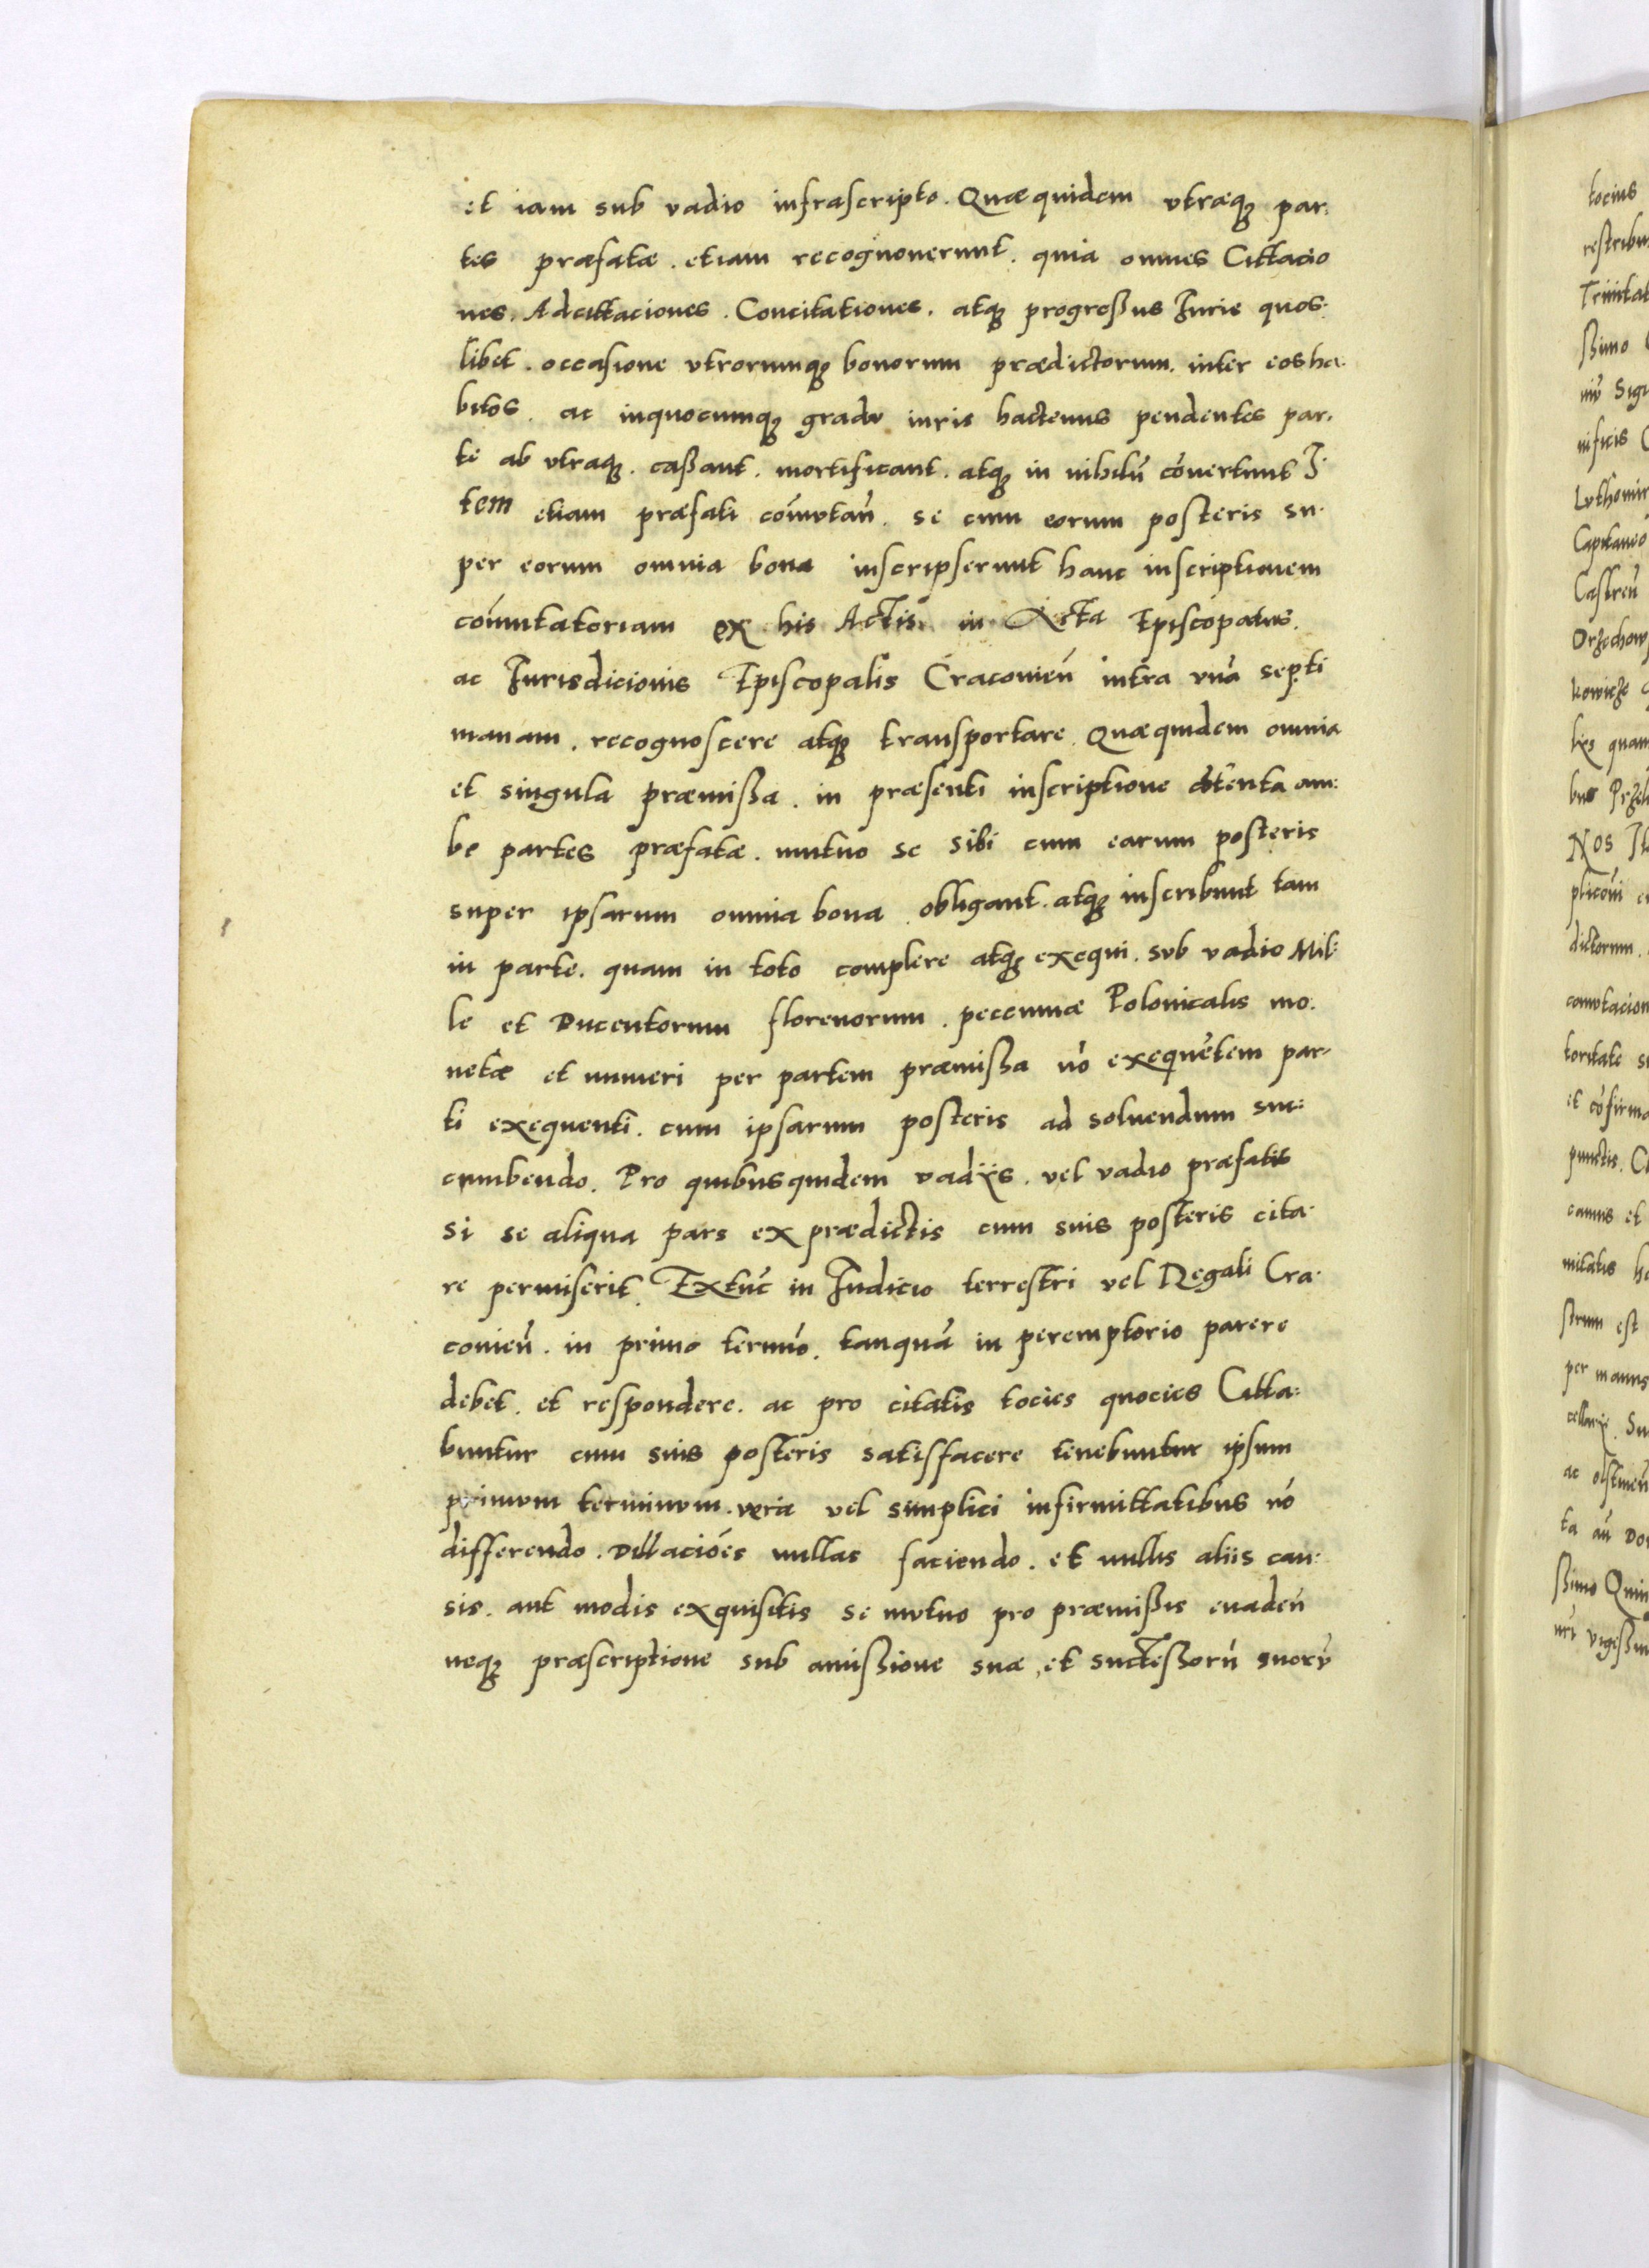 et iam sub vadio infrascripto. Quæquidem vtræqꝫ par:
tes præfatæ. etiam recognouerunt. quia omnes Cittacio
nes. Adcittaciones. Concitationes. atqꝫ progroßus Iurie quos:
libet. occasione vtrorumqꝫ bonorum prædictorum. inter eos ha:
bitos. ac inquocumqꝫ gradu iuris hactenus pendentes par:
te ab vtraqꝫ. caßant. mortificant. atqꝫ in nihilū cōuertunt I:
tem etiam præfati cōmutan̄. se cum eorum posteris su:
per eorum omnia bona inscripserunt hanc inscriptionem
cōmutatoriam ex his Actis in Acta Episcopatus.
ac Iurisdicionis Episcopalis Cracouien̄ intra vnā septi
manam. recognoscere atqꝫ transportare. Quæquidem omnia
et singula præmißa. in præsenti inscriptione cōtenta am:
be partes præfatæ. mutuo se sibi cum earum posteris
super ipsarum omnia bona obligant. atqꝫ inscribunt tam
in parte. quam in toto complere atqꝫ exequi. sub vadio Mil:
le et Ducentorum florenorum. peccuniæ Polonicalis mo:
netæ et numeri per partem præmißa nō exequētem par:
ti exequenti. cum ipsarum posteris ad soluendum suc:
cumbendo. Pro quibusquidem vadÿs. vel vadio præfatis
si se aliqua pars ex prædictis cum suis posteris cita:
re permiserit. Extūc in Iudicio terrestri vel Regali Cra:
couien̄. in primo termīo. tanquā in peremptorio parere
debet. et respondere. ac pro citatis tocies quocies Citta:
buntur cum suis posteris satisfacere tenebuntur ipsum
primum terminum. vera vel simplici infirmittatibus nō
differendo. Dillaciōes nullas faciendo. et nullis aliis cau:
sis. aut modis exquisitis se mutuo pro præmißis euaden̄
neqꝫ præscriptione sub amißione suæ, et suctteßorū suorū
tocius
restribu
Trinitat
ßimo
Sigi
nificis
Capitaneo
Castren̄
Orzechow
kowicze
quam
NOS
dictorum.
toritate
et cōfirma
punctis.
camus et
mitatis
est
per manus
ac
ta
ßimo